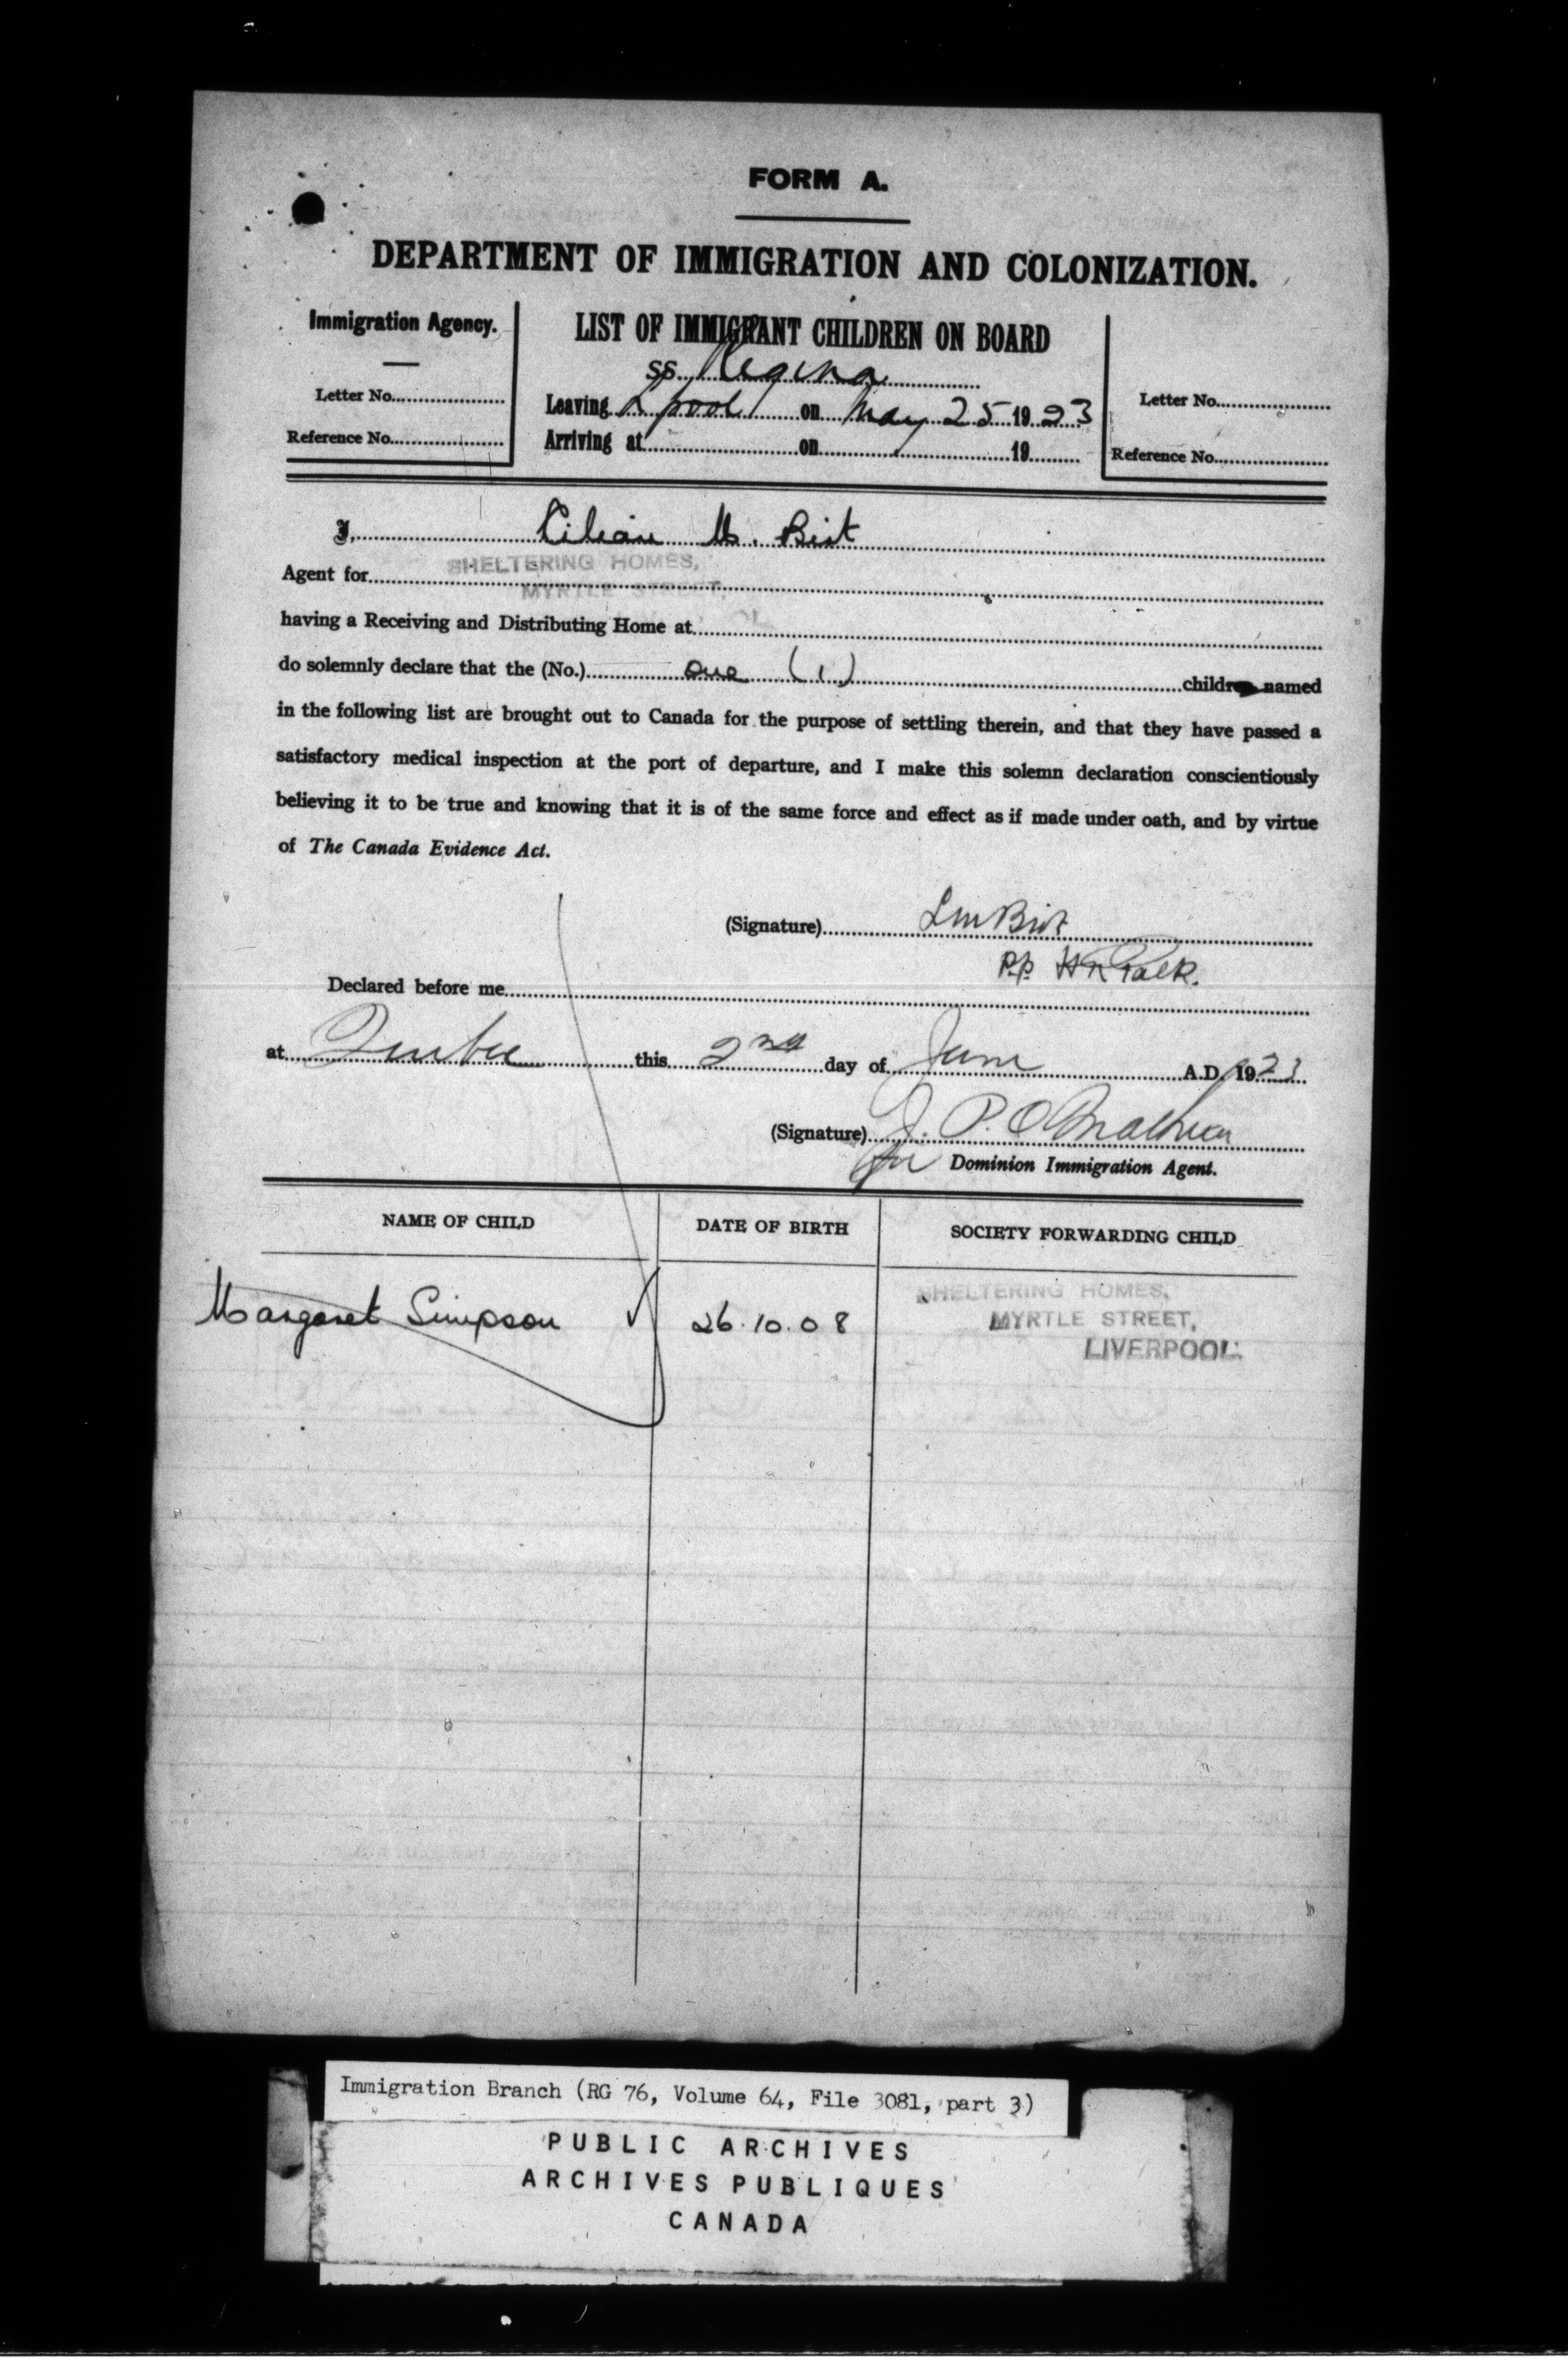 FORM A.
DEPARTMENT OF IMMIGRATION AND COLONIZATION.
Immigration Agency.
Letter No.
Reference No.
LIST OF IMMIGRANT CHILDREN ON BOARD
SS. Regina
Leaving L'pool on May 25 1923
Arriving at on 19
Letter No.
Reference No.
I, Lilian M. Birt
Agent for SHELTERING HOMES,
MYRTLE STREET,
having a Receiving and Distributing Home at
do solemnly declare that the (No.) one (1) child named
in the following list are brought out to Canada for the purpose of settling therein, and that they have passed a
satisfactory medical inspection at the port of departure, and I make this solemn declaration conscientiously
believing it to be true and knowing that it is of the same force and effect as if made under oath, and by virtue
of The Canada Evidence Act.
(Signature) L M Birt
p.p.
Declared before me
at Quebec this 2nd day of June A.D. 1923
(Signature) J. P. O.
for Dominion Immigration Agent.
NAME OF CHILD DATE OF BIRTH SOCIETY FORWARDING CHILD
Margaret Simpson 26.10.08 SHELTERING HOMES,
MYRTLE STREET,
LIVERPOOL.
Immigration Branch (RG 76, Volume 64, File 3081, part 3)
PUBLIC ARCHIVES
ARCHIVES PUBLIQUES
CANADA